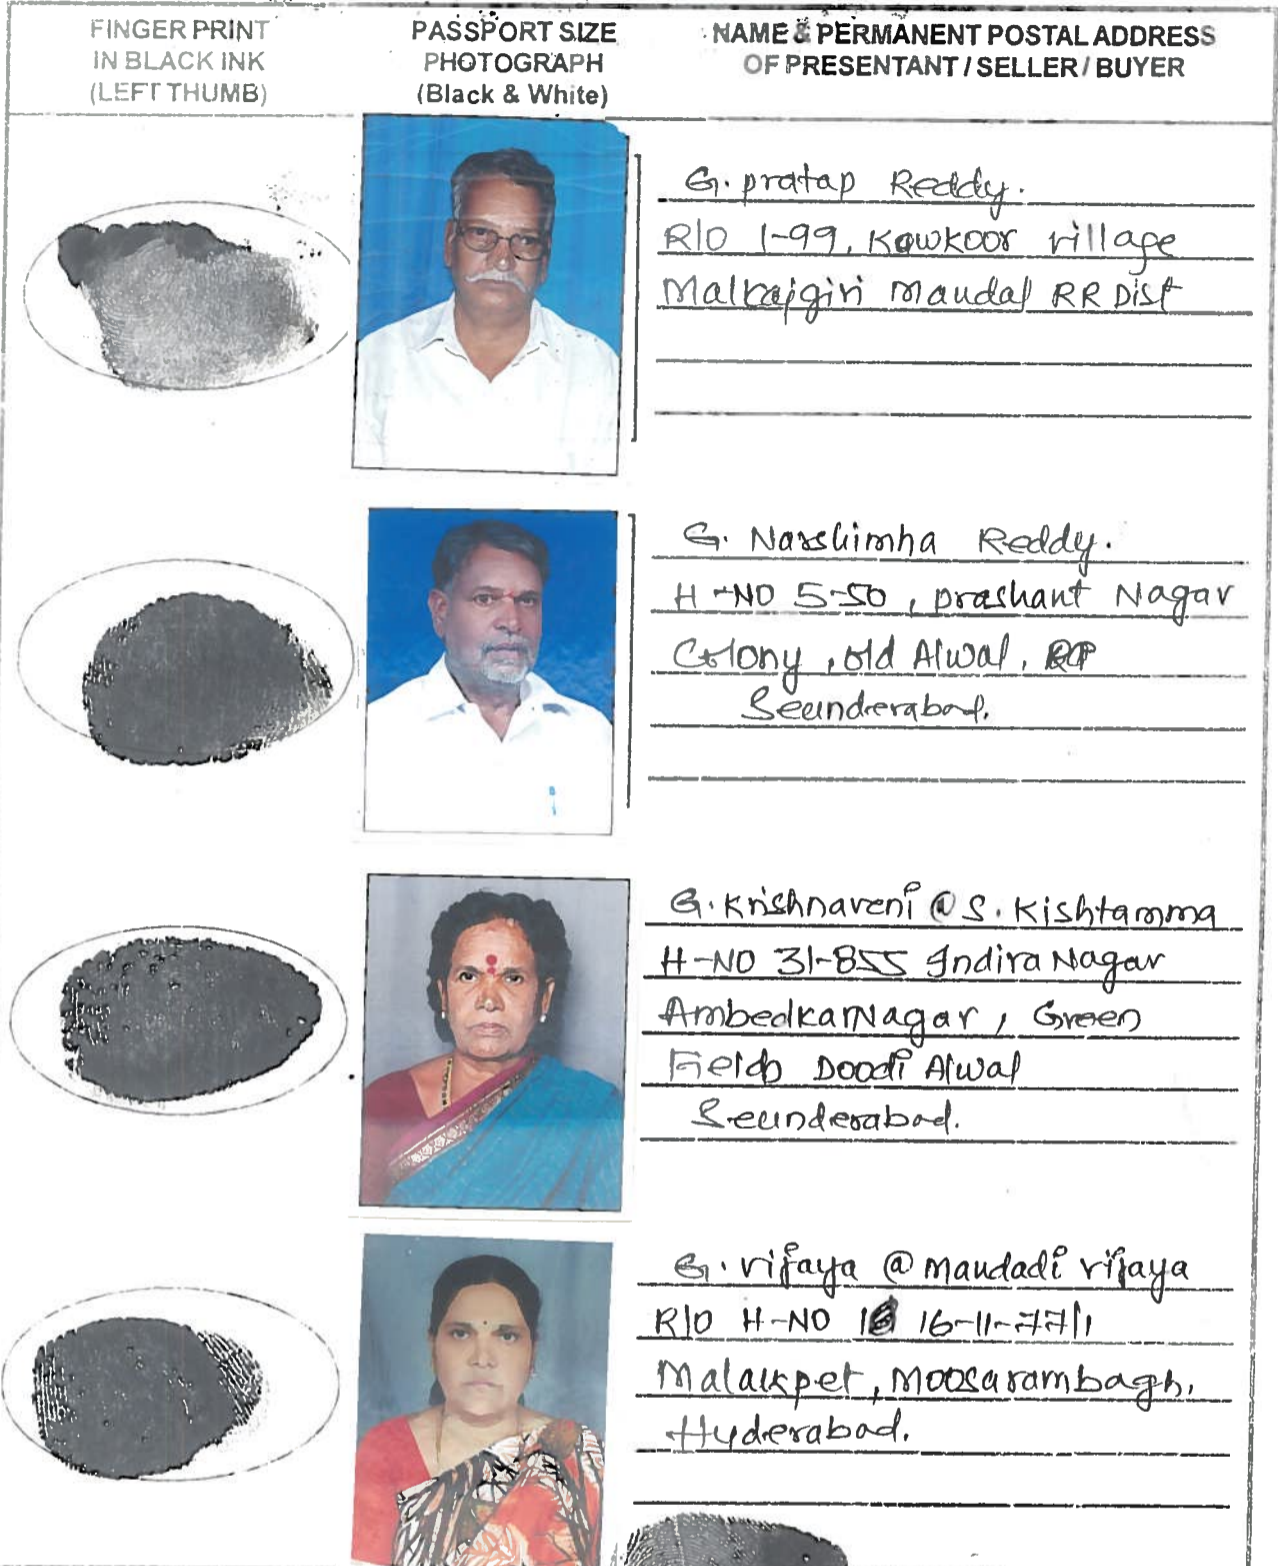 FINGER PRINT
IN BLACK INK
(LEFT THUMB)
PASSPORT SIZE
PHOTOGRAPH
(Black & White)
NAME & PERMANENT POSTAL ADDRESS
OF PRESENTANT / SELLER / BUYER
G. pratap Reddy.
R/O 1-99, Kowkoor village
Malkajgiri Mandal RR Dist
G. Narshimha Reddy.
H-NO 5-50, prashant Nagar
Colony, old Alwal,
Secunderabad.
G. Krishnaveni @ S. Kishtamma
H-NO 31-855 Indira Nagar
Ambedkar Nagar, Green
Fields Doodi Alwal
Secunderabad.
G. vijaya @ Mandadi vijaya
R/O H-NO 16-11-77/1
Malakpet, Moosarambagh,
Hyderabad.